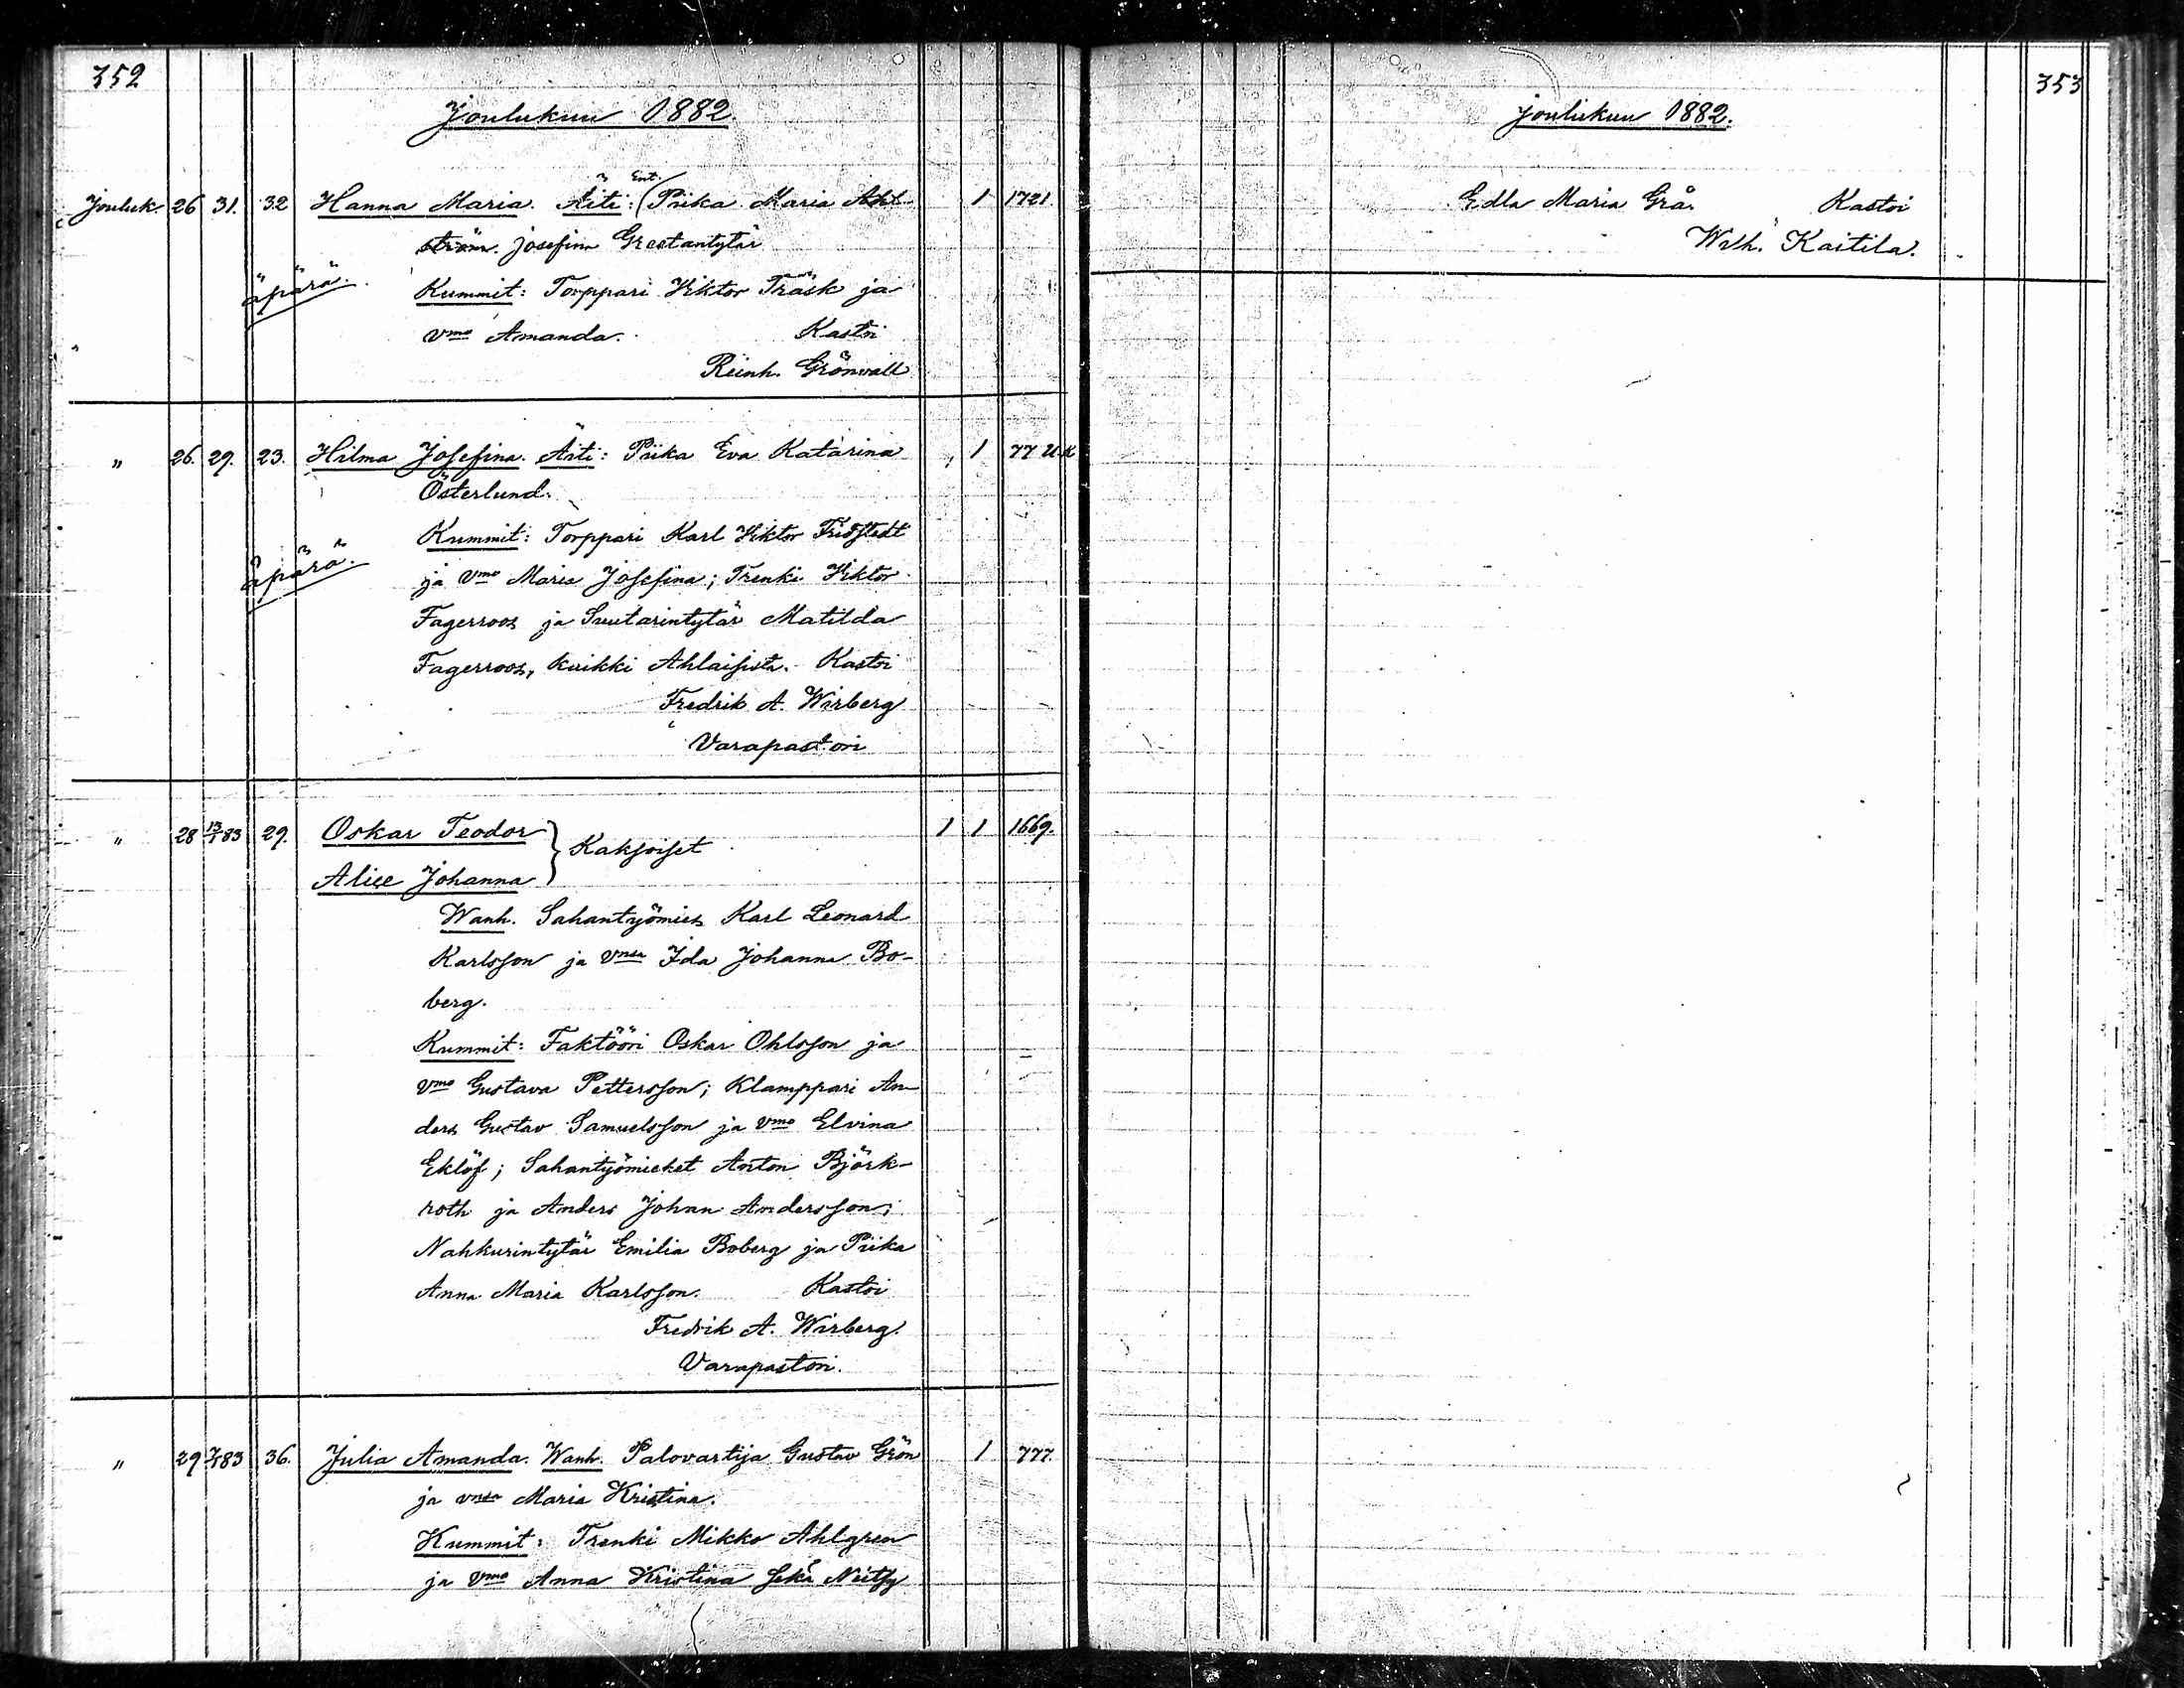 352
Joulukuu 1882.
Jouluk. 26 31. 32 Hanna Maria. Äiti: (Ent. Piika Maria Ahl- 1 1721.
ström. Josefina Greetantytär
äpärä.
Kummit: Torppari Viktor Träsk ja
vmo Amanda. Kastoi
Reinh. Grönvall
" 26. 29. 23. Hilma Josefina. Äiti: Piika Eva Katarina 1 77 U.K
Österlund.
Kummit: Torppari Karl Viktor Fridstedt
äpärä.
ja vmo Maria Josefina; Trenki Viktor
Fagerroos ja Suutarintytär Matilda
Fagerroos, kaikki Ahlaisista. Kastoi
Fredrik A. Wirberg
Varapastori
" 28 13/1 83 29. Oskar Teodor } Kaksoiset 1 1 1669.
Alice Johanna
Wanh. Sahantyömies Karl Leonard
Karlsson ja vnsa Ida Johanna Bo-
berg.
Kummit: Faktööri Oskar Ohlsson ja
vmo Gustava Pettersson; Klamppari An-
ders Gustav Samuelsson ja vmo Elvina
Eklöf; Sahantyömiehet Anton Björk-
roth ja Anders Johan Andersson;
Nahkurintytär Emilia Boberg ja Piika
Anna Maria Karlsson. Kastoi
Fredrik A. Wirberg.
Varapastori.
" 29 83 36. Julia Amanda. Wanh. Palovartija Gustav Grön 1 777.
ja vnsa Maria Kristina.
Kummit: Trenki Mikko Ahlgren
ja vmo Anna Kristina sekä Neitsy
353
Joulukuu 1882.
Edla Maria Grå. Kastoi
Wilh. Kaitila.